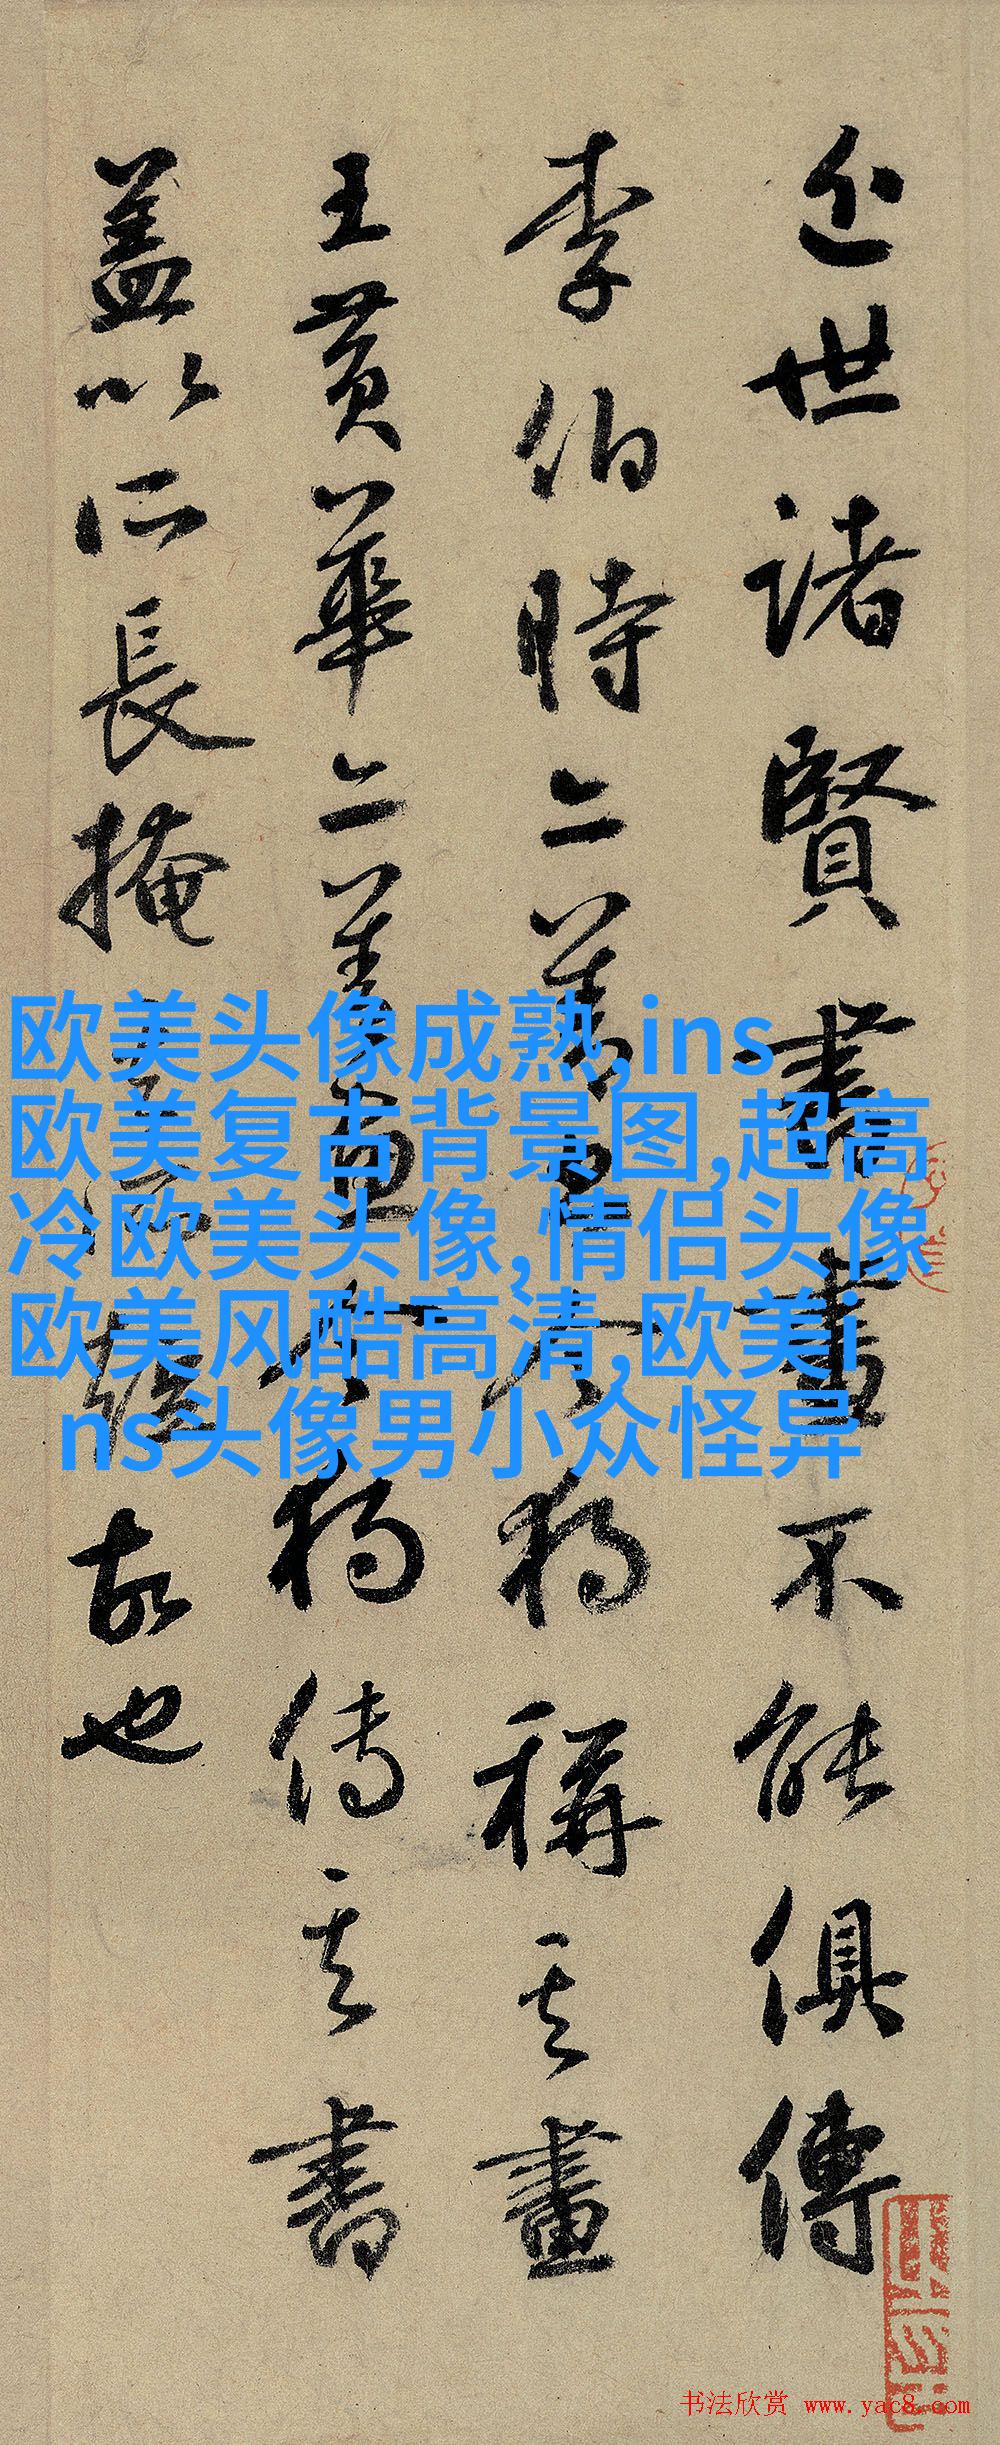 近世諸賢書畫不能俱傳
李伯時善書今獨稱其畫
王黄華善畫今獨傳其書
蓋以所長掩其所短故也
欧美头像成熟,ins
欧美复古背景图,超高
冷欧美头像,情侣头像
欧美风酷高清,欧美i
ns头像男小众怪异
书法欣赏 www.yac8.com